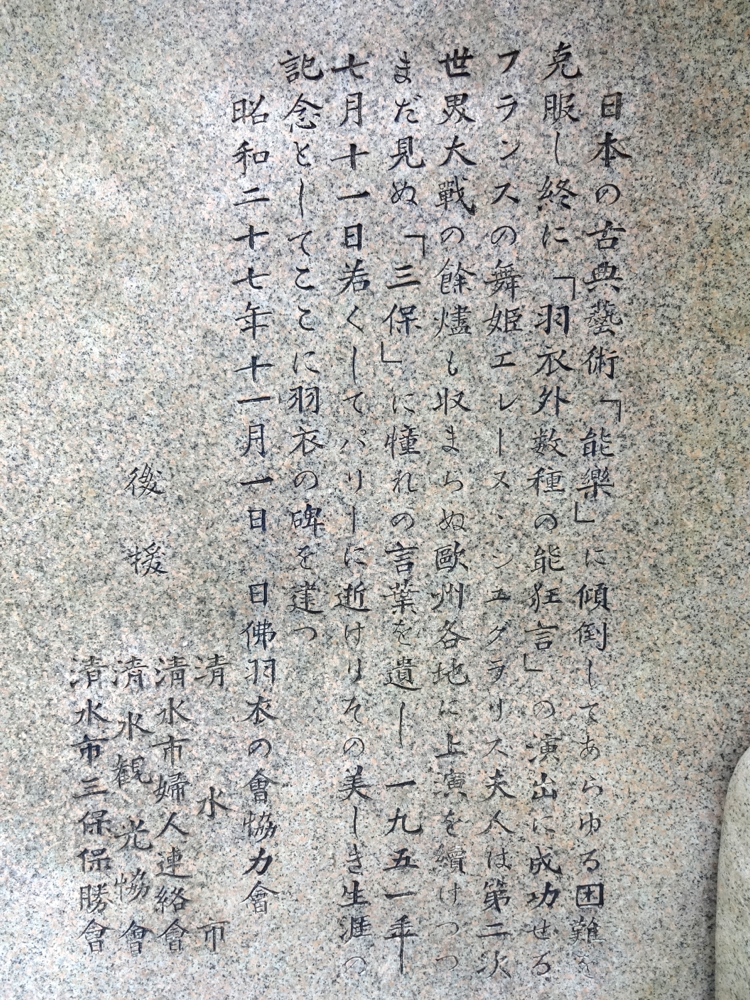 日本の古典藝術「能樂」に傾倒してあらゆる困難を
克服し終に「羽衣外数種の能狂言」の演出に成功せる
フランスの舞姫エレーヌ・ジュグラリス夫人は第二次
世界大戦の餘燼も収まらぬ歐州各地に上演を續けつつ
まだ見ぬ「三保」に憧れの言葉を遺し一九五一年
七月十一日若くしてパリーに逝けりその美しき生涯の
記念としてここに羽衣の碑を建つ
昭和二十七年十一月一日 日佛羽衣の會協力會
後援 清水市
清水市婦人連絡會
清水観光協會
清水市三保保勝會